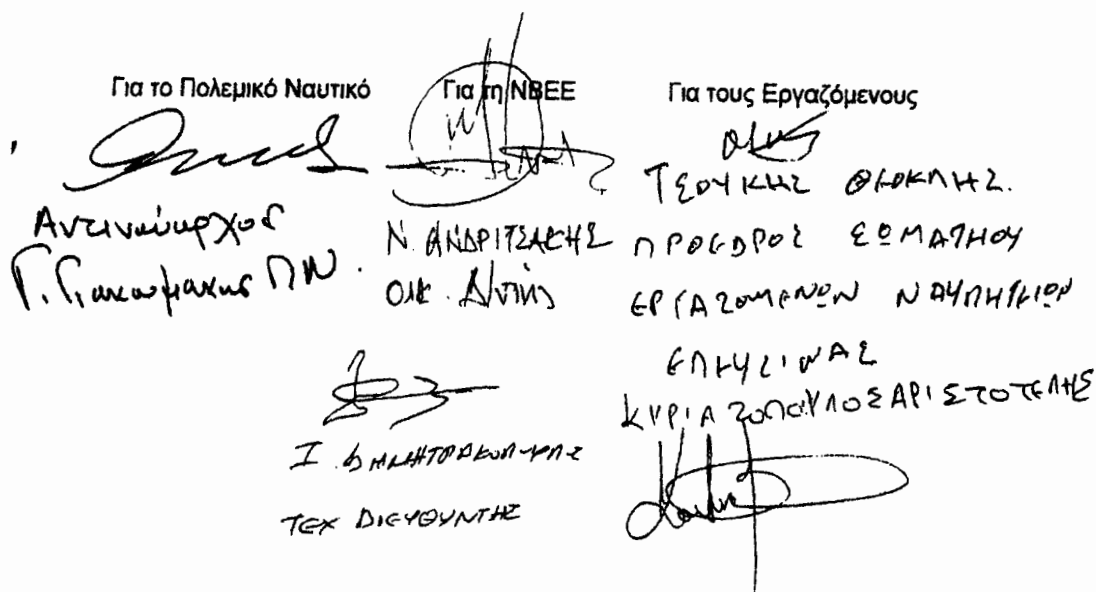 Για το Πολεμικό Ναυτικό
Αντιναύαρχος
Γ. Γιακουμάκης ΠΝ.
Για τη ΝΒΕΕ
Ν. ΑΝΔΡΙΤΣΑΚΗΣ
ΟΙΚ. Δ/ντής
Ι. ΔΗΜΗΤΡΑΚΟΠΟΥΛΟΣ
ΤΕΧ ΔΙΕΥΘΥΝΤΗΣ
Για τους Εργαζόμενους
ΤΣΟΥΚΗΣ ΘΕΟΚΛΗΣ.
ΠΡΟΕΔΡΟΣ ΣΩΜΑΤΗΟΥ
ΕΡΓΑΖΟΜΕΝΩΝ ΝΑΥΠΗΓΙΩΝ
ΕΛΕΥΣΙΝΑΣ
ΚΥΡΙΑΖΟΠΟΥΛΟΣ ΑΡΙΣΤΟΤΕΛΗΣ